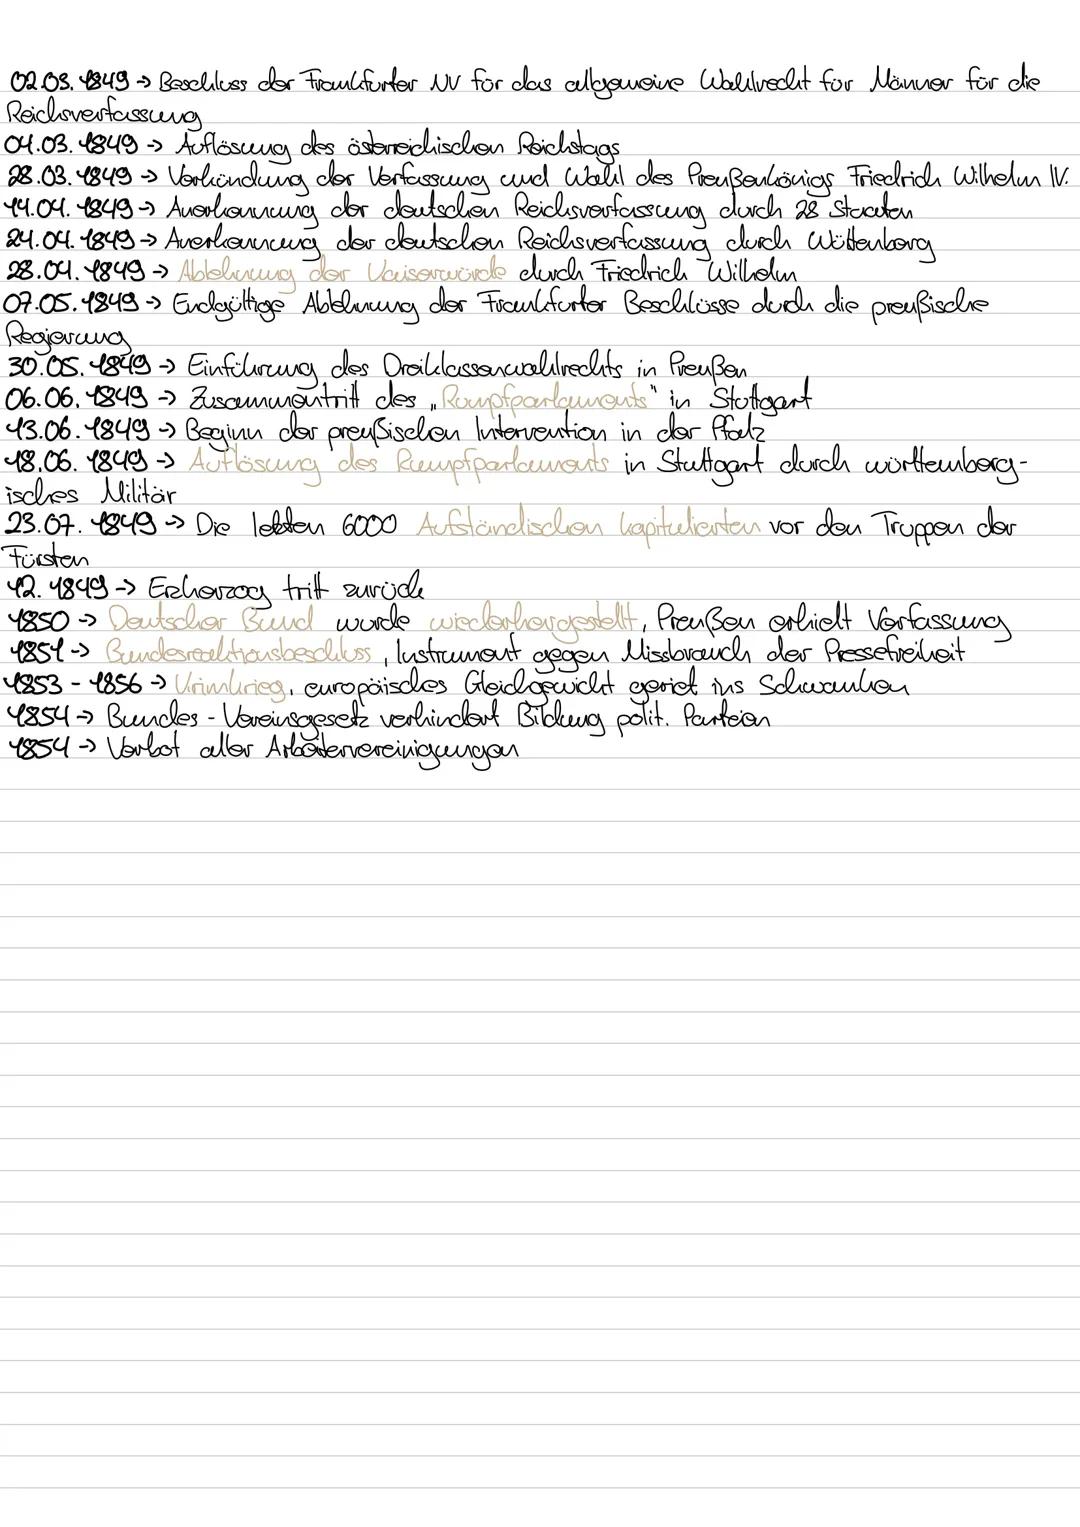 02.03.1849 → Beschluss der Frankfurter NV für das allgemeine Wahlrecht für Männer für die
Reichsverfassung
04.03.1849 → Auflösung des österreichischen Reichstags
28.03.1849 → Verkündung der Verfassung und Wahl des Preußenkönigs Friedrich Wilhelm IV.
14.04.1849 → Anerkennung der deutschen Reichsverfassung durch 28 Staaten
24.04.1849 → Anerkennung der deutschen Reichsverfassung durch Württenberg
28.04.1849 → Ablehnung der Kaiserwürde durch Friedrich Wilhelm
07.05.1849 → Endgültige Ablehnung der Frankfurter Beschlüsse durch die preußische
Regierung
30.05.1849 → Einführung des Dreiklassenwahlrechts in Preußen
06.06.1849 → Zusammentritt des „Rumpfparlaments" in Stuttgart
13.06.1849 → Beginn der preußischen Intervention in der Pfalz
18.06.1849 → Auflösung des Rumpfparlaments in Stuttgart durch württemberg-
isches Militär
23.07.1849 → Die letzten 6000 Aufständischen kapitulierten vor den Truppen der
Fürsten
12.1849 → Erzherzog tritt zurück
1850 → Deutscher Bund wurde wiederhergestellt, Preußen erhielt Verfassung
1851 → Bundesreaktionsbeschluss, Instrument gegen Missbrauch der Pressefreiheit
1853 - 1856 → Krimkrieg, europäisches Gleichgewicht geriet ins Schwanken
1854 → Bundes-Vereinsgesetz verhindert Bildung polit. Parteien
1854 → Verbot aller Arbeitervereinigungen